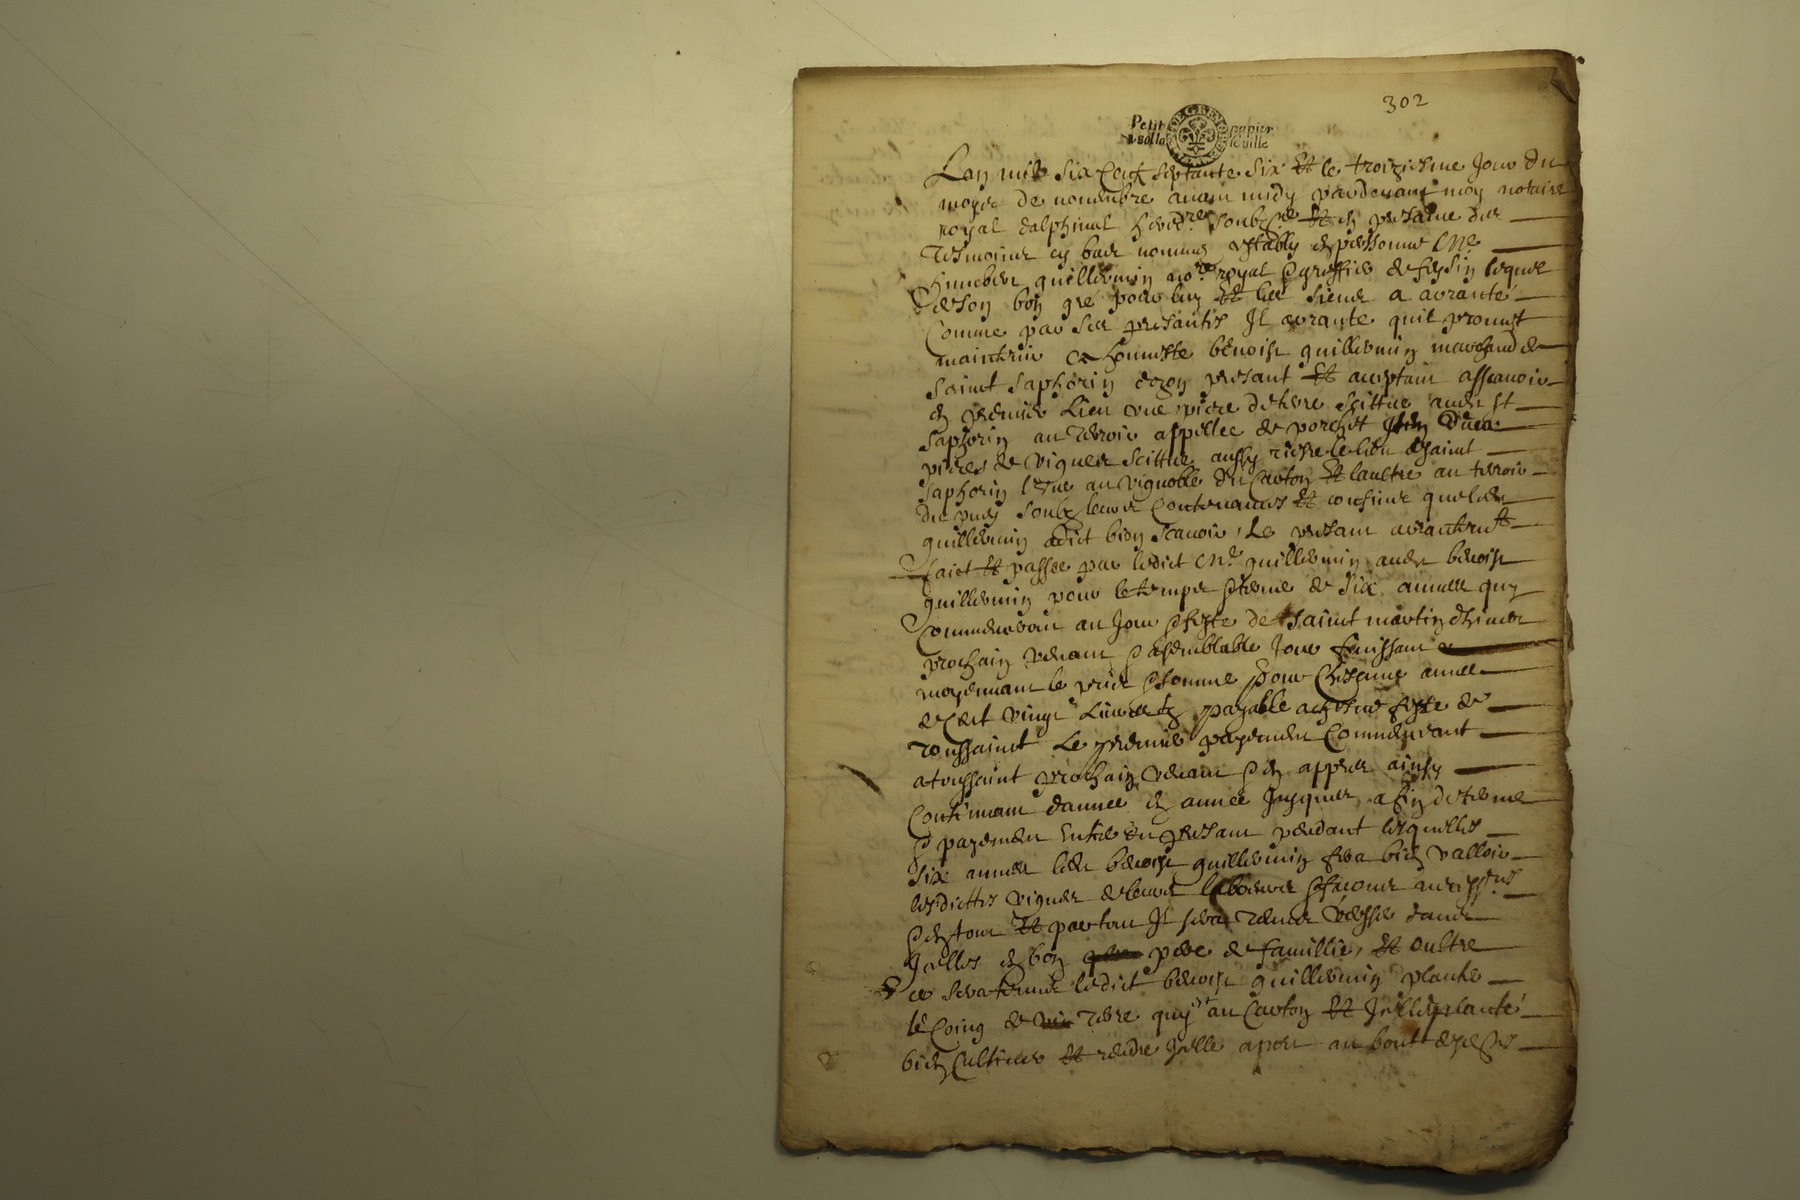 302
Petit papier
a sol la feuille
DE GRENOBLE
Lan mil six cent septante six et le troiziesme Jour du
moys de novembre avant midy pardevant moy notaire
royal dalphinal heredre soubzne et en presance des
tesmoins cy bas nommes estably en personne Me
guillermin nore royal & greffier de feysin lequel
de son bon gré pour luy et les siens a arranté
Comme par ses presantes Il arrante quil promet
maintenir a honneste benoist guillermin marchand de
Saint Saphorin dozon presant et acceptant assavoir
en premier Lieu une piece de terre scittue audit St
Saphorin au terroir appellee de porchet Item deux
pieces de vignes scittue aussy riere le lieu de saint
Saphorin l'une au vignoble du Carton et laultre au terroir
du soubz leurs Contenances et confins que ledit
guillermin a dict bien scavoir, Le presant arrantement
faict et passee par ledict Me guillermin audit benoist
guillermin pour le temps & terme de six annees quy
Commenceront au Jour & feste de saint martin d'hiver
prochain venant & a semblable Jour finissant
moyennant le prix & somme pour Chascune annee
de Cent vingt Livres payable a chascune feste de
toussaint Le premier payement Commencant
a toussaint prochain venant & en appres ainsy
Continuant dannee en annee Jusques a fin de terme
& payement entier du presant pendant lesquelles
six annees ledit benoist guillermin fera bien valloir
lesdictes vignes de leurs labeures & facons necessres
& en tout et partout Il sera tenus verser dans
Icelles en bon pere de famillie, et oultre
ce sera tenus ledict benoist guillermin planter
le Coing de terre quy est au Carton et Icelle planté
bien Cultiver et rendre Icelle a port au bout desdes